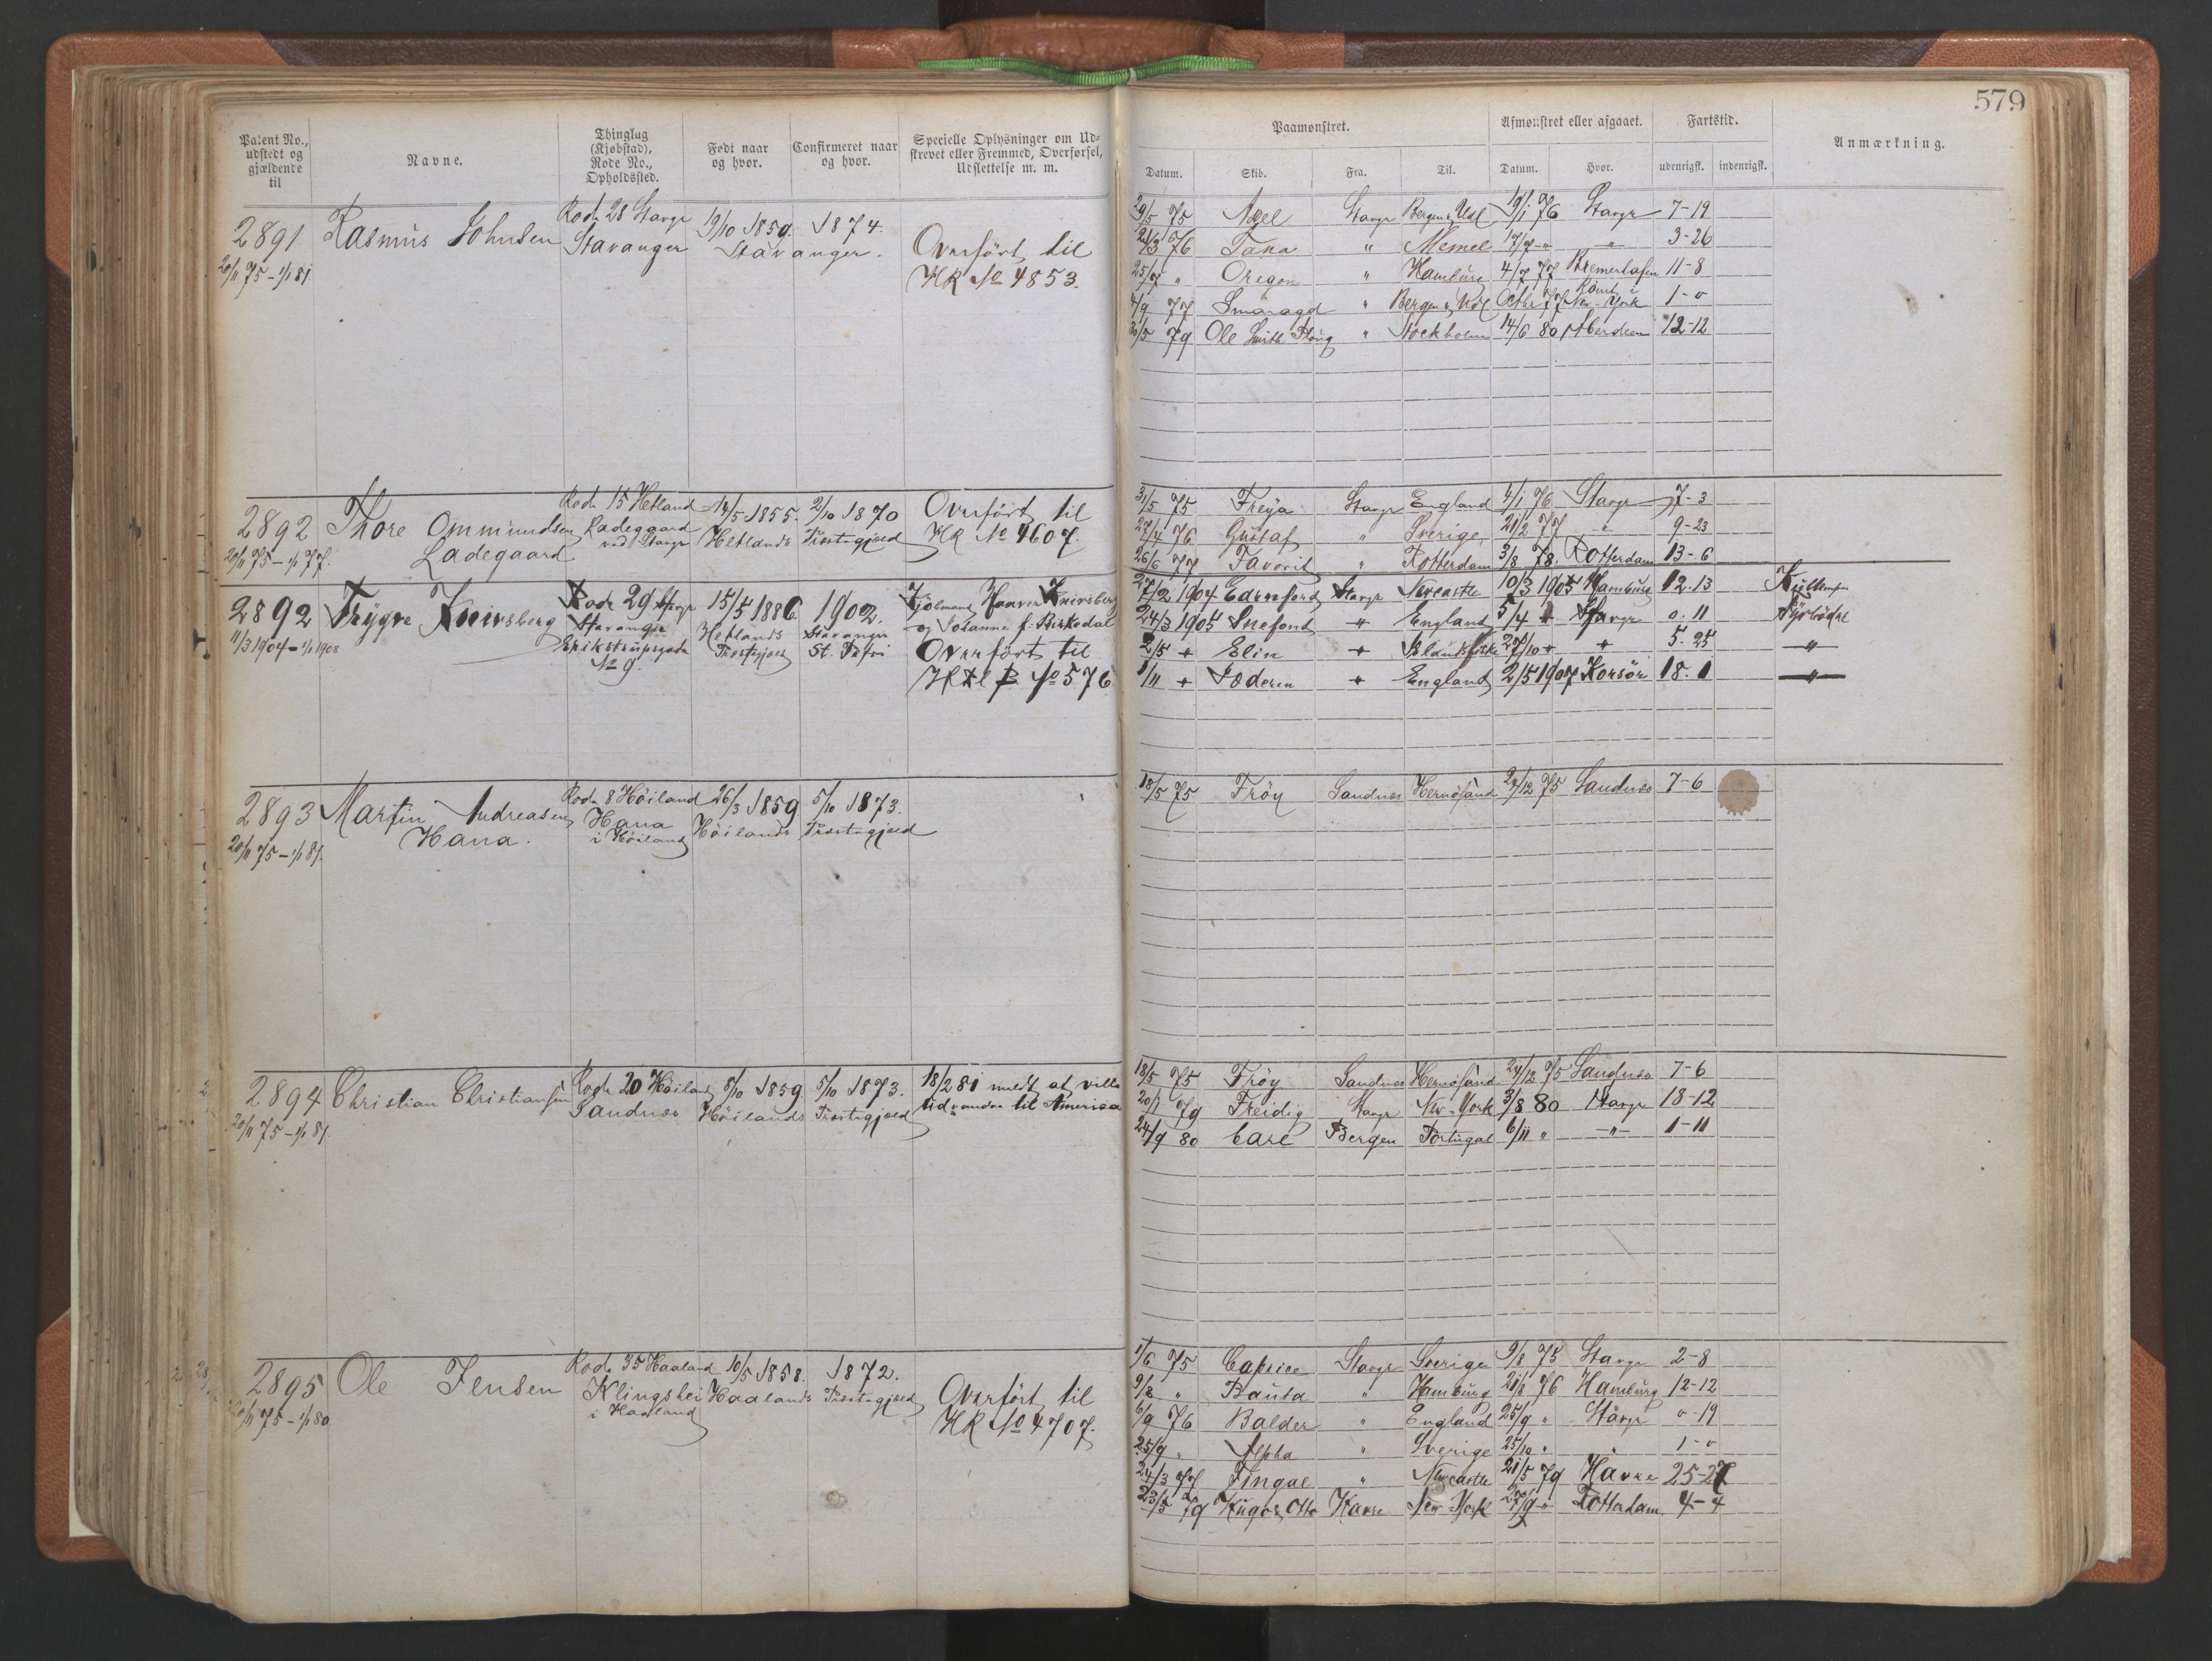 579
Patent No., udstedt og gjældende til
Navne.
Thinglag (Kjøbstad), Rode No., Opholdssted.
Født naar og hvor.
Confirmeret naar og hvor.
Specielle Oplysninger om Udstrevet eller Fremmed, Overførsel, Udslettelse m. m.
Paamønstret.
Afmønstret eller afgaaet.
Fartstid.
Anmærkning.
Datum. Skib. Fra. Til. Datum. Hvor. udenrigsk. indenrigsk.
2891 Rasmus Johnsen Rode 28 Stavgr 19/10 1859. 1874.
20/11 75 – 1/1 81 Stavanger Stavanger.
Overført til
HR No 4853.
29/5 75 Axel Stavgr Bergen & Udl 19/1 76 Stavgr 7-19
21/3 76 Tana " Memel 17/7 " " 3-26
25/7 " Oregon " Hamburg 4/7 77 Bremerhafen 11-8
4/9 77 Smaragd " Bergen & Udl Octbr 77 Rømt New-York 1-0
30/5 79 Ole Smith Ploug " Stockholm 14/6 80 Aberdeen 12-12
2892 Thore Ommundsen Rode 15 Hetland 14/5 1855. 2/10 1870
Ladegaard
20/11 75 – 1/1 77.
Ladegaard ved Stavgr Hetlands Præstegjæld
Overført til
HR No 4607.
31/5 75 Freya Stavgr England 4/1 76 Stavgr 7-3
27/4 76 Gustaf " Sverige, 21/2 77 " 9-23
26/6 77 Favorit " Rotterdam 3/8 78. Rotterdam 13-6
2892 Trygve Kneivsberg Rode 29 Stavgr 15/5 1886 1902.
11/3 1904 – 1/1 1908
Stavanger
Erikstrupsgade
No 9.
Hetlands Præstegjæld
Stavanger St. Petri
og Johanne f. Birkedal
Overført til
27/2 1904 Stavgr Newcastle 10/3 1905 Hamburg 12.13
24/3 1905 Snefond " England 5/4 " Stavgr 0.11 Fyrbøder
2/5 " Elin " 27/10 " " 5.25 "
1/11 " Soderen " England 2/5 1907 Korsør 18.1 "
2893 Martin Andreasen Rode 8 Høiland 26/3 1859 5/10 1873.
Hana.
20/11 75 – 1/1 81.
Hana i Høiland Høilands Præstegjæld
18/5 75 Frøy Sandnes Hernøsand 24/12 75 Sandnes 7-6
2894 Christian Christiansen Rode 20 Høiland 8/10 1859 5/10 1873.
20/11 75 – 1/1 81.
Sandnes Høilands Præstegjæld
18/2 81 meldt at ville
udvandre til America
18/5 75 Frøy Sandnes Hernøsand 24/12 75 Sandnes 7-6
20/1 79 Freidig Stavgr New-York 3/8 80 Stavgr 18-12
24/9 80 Carl Bergen Portugal 6/11 " " 1-11
2895 Ole Jensen Rode 35 Haaland 10/5 1858. 1872.
20/11 75 – 1/1 80
Klingshei i Haaland Haalands Præstegjæld
Overført til
HR No 4707.
1/6 75 Caprice Stavgr Sverige 9/8 75 Stavgr 2-8
9/8 " Bauta " Hamburg 21/8 76 Hamburg 12-12
6/9 76 Balder " England 25/9 " Stavgr 0-19
25/9 " Alpha " Sverige 25/10 " " 1-0
24/3 77 Fingal " Newcastle 21/5 79 Havre 25-27
23/5 79 Hugo & Otto Havre New-York 27/9 " Rotterdam 4-4